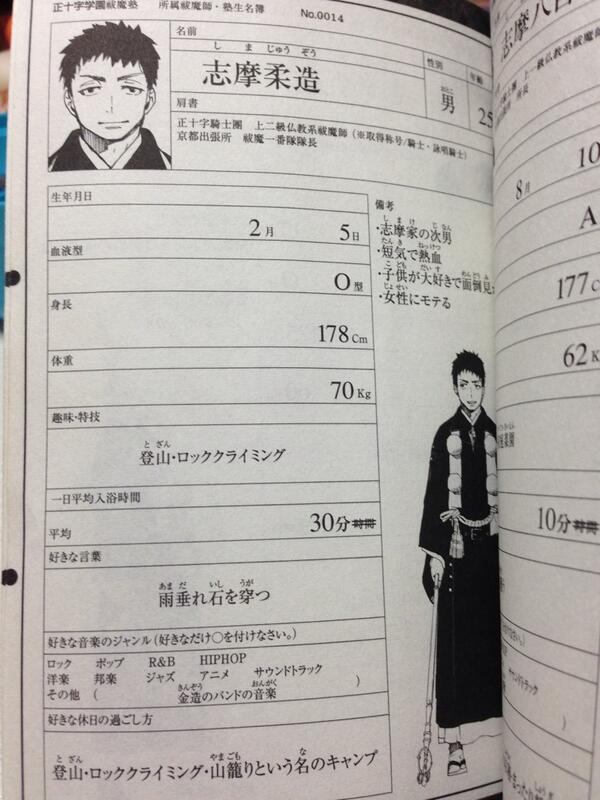 正十字学園祓魔塾 所属祓魔師・塾生名簿 No.0014
名前
しま じゅうぞう
志摩柔造
性別
おとこ
男
年齢
25
肩書
正十字騎士團 上二級仏教系祓魔師(※取得称号/騎士・詠唱騎士)
京都出張所 祓魔一番隊隊長
生年月日
2月 5日
血液型
O型
身長
178Cm
体重
70Kg
趣味・特技
とざん
登山・ロッククライミング
一日平均入浴時間
平均 30分 時間
好きな言葉
あまだ いし うが
雨垂れ石を穿つ
好きな音楽のジャンル(好きなだけ○を付けなさい。)
ロック ポップ R&B HIPHOP
洋楽 邦楽 ジャズ アニメ サウンドトラック
きんぞう おんがく
その他( 金造のバンドの音楽 )
好きな休日の過ごし方
とざん やまごも な
登山・ロッククライミング・山籠りという名のキャンプ
備考
しまけ じなん
・志摩家の次男
たんき ねっけつ
・短気で熱血
こども だいす めんどうみ
・子供が大好きで面倒見
じょせい
・女性にモテる
志摩八百
上一級仏教系祓魔師
所長
8月 10
A
177C
62K
10分 時間
サウンドトラック